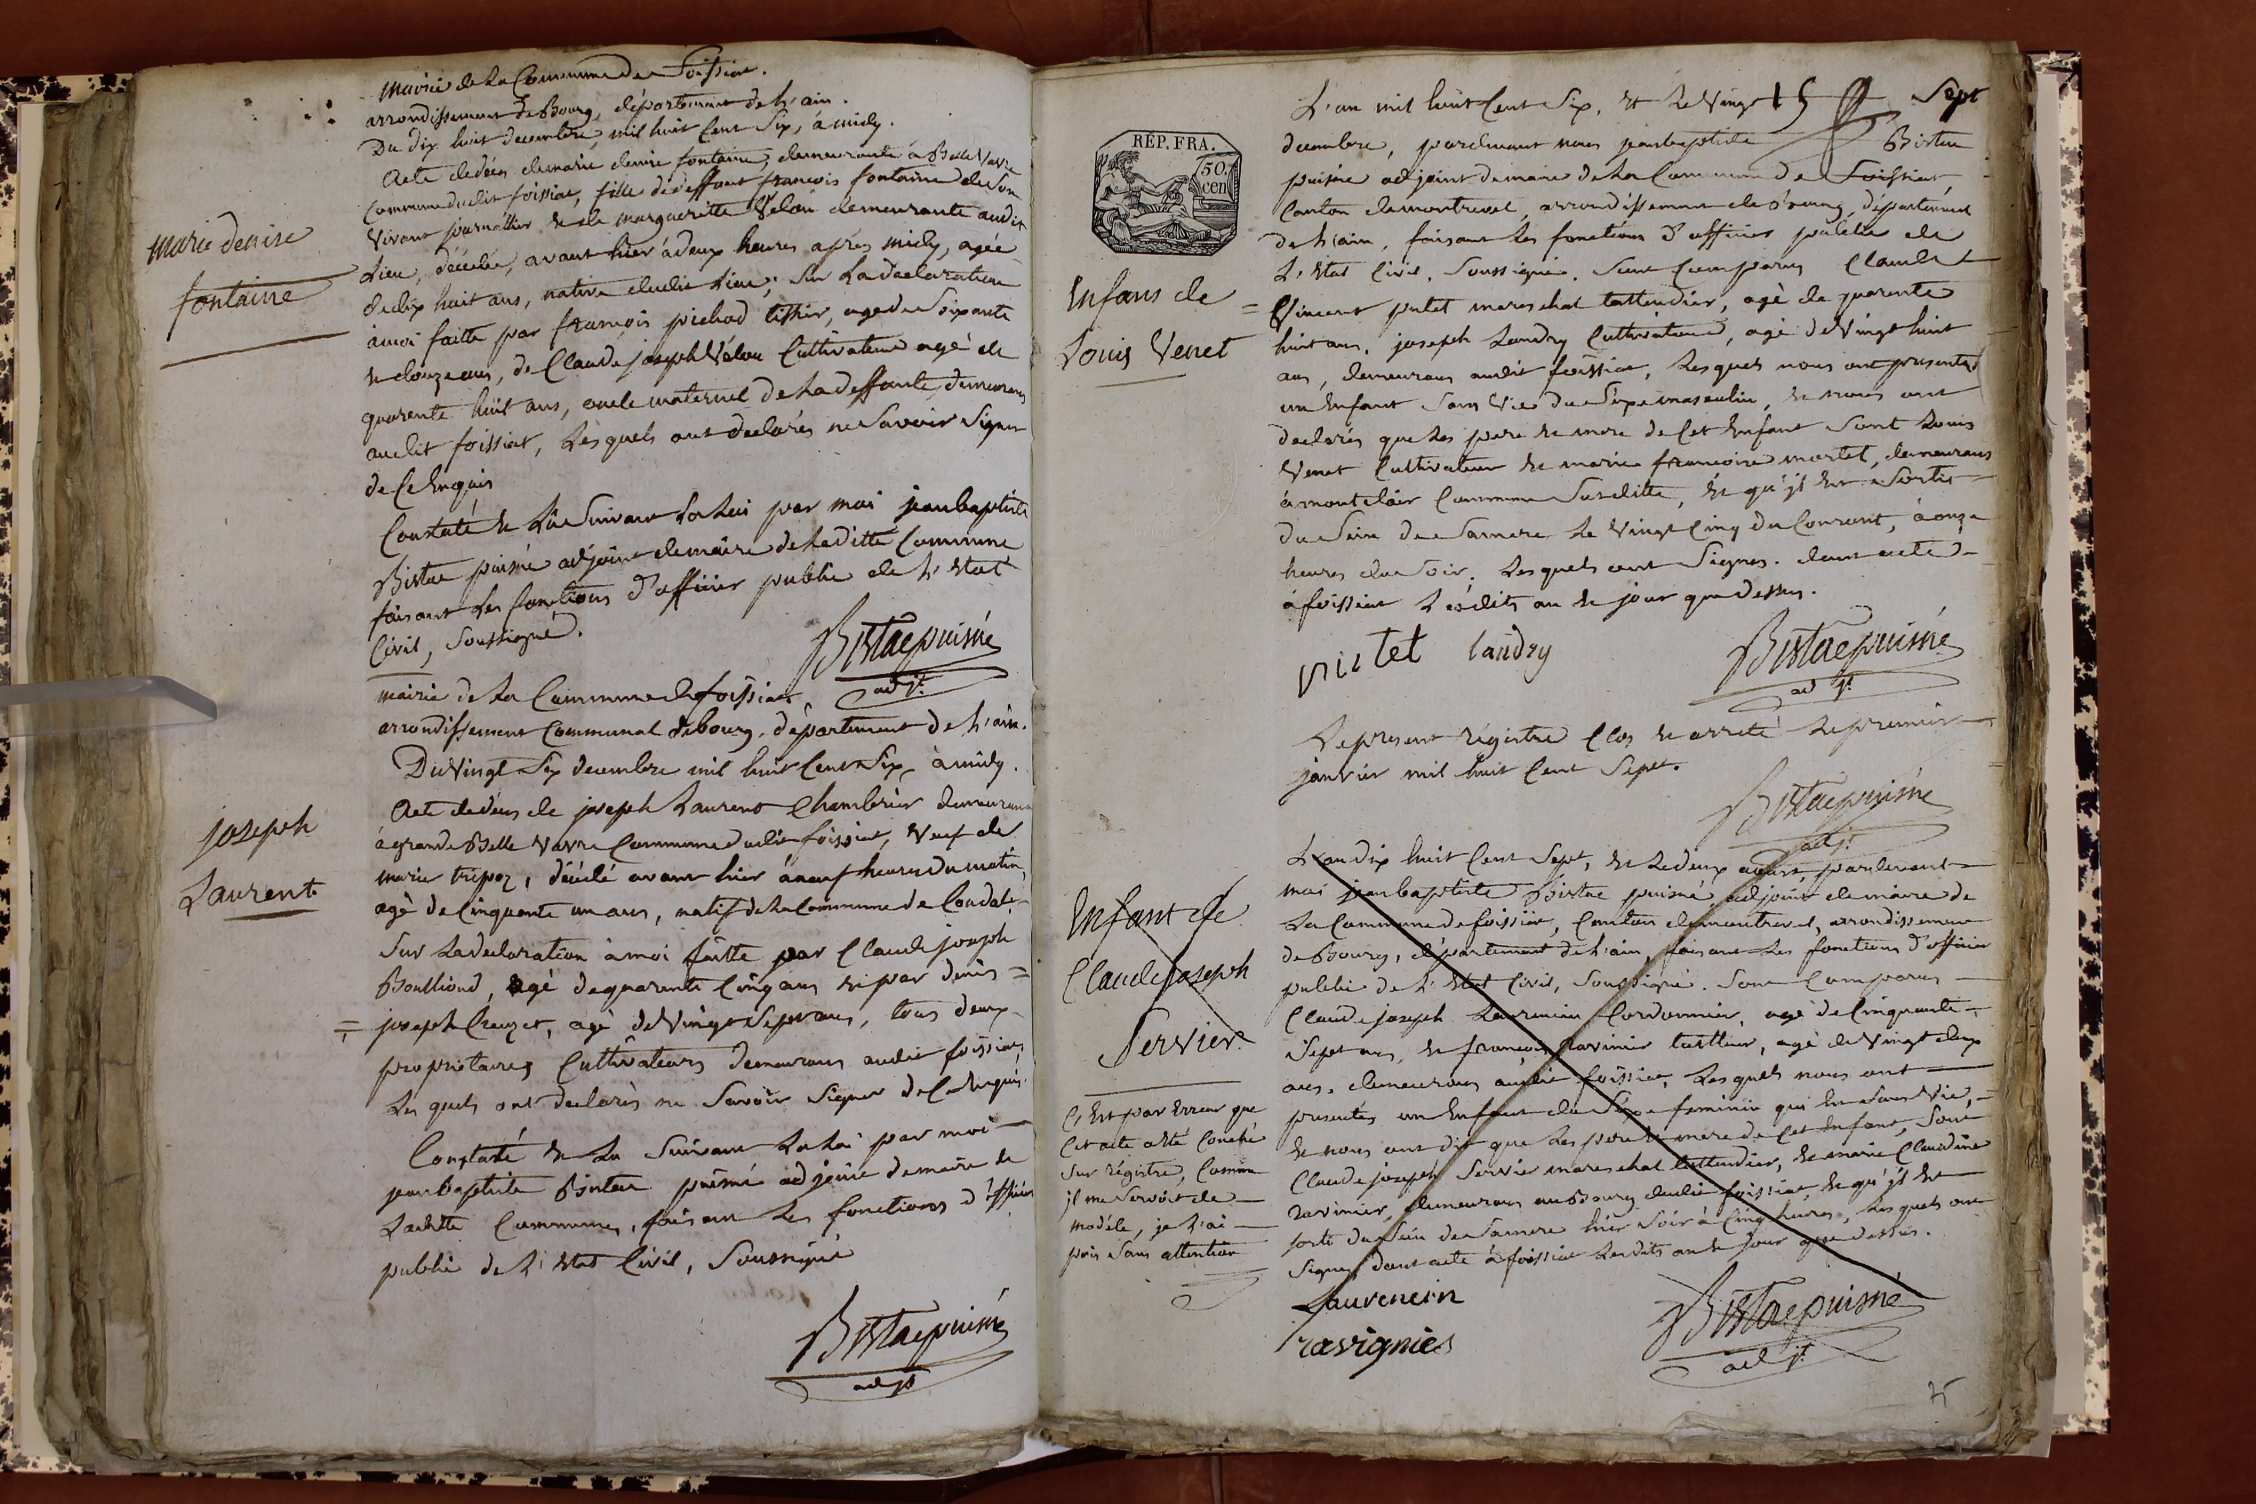 Mairie de la Commune de Foissiat.
arrondissement de Bourg, département de l'ain.
Du dix huit decembre, mil huit Cent Six, à midy.
Acte de décès de marie denise fontaine, demeurante à Belle Vavre
Commune dudit foissiat, fille de deffunt françois fontaine de Son
Vivant journallier et de margueritte Velon demeurante audit
Lieu, décédée, avant hier à deux heures après midy, agée
de dix huit ans, native dudit Lieu; Sur La declaration
à moi faitte par françois pichod tissier, agé de Soixante
et douze ans, de Claude joseph Vélon Cultivateur agé de
quarente huit ans, oncle maternel de La deffunte, demeurans
audit foissiat, Lesquels ont declarés ne Savoir Signer
de Ce Enquis
Constaté et Lû Suivant La Loi par moi jean baptiste
Bistac puisné adjoint de maire de Laditte Commune
faisant Les fonctions d'officier public de L'Etat
Civil, Soussigné.
Bistac puisné
adjt.
Marie denise
fontaine
mairie de La Commune de foissiat
arrondissement Communal de bourg, département de L'ain.
Du Vingt Six decembre mil huit Cent Six, à midy.
Acte de décès de joseph Laurent Chambrier demeurant
à grande Belle Vavre Commune dudit foissiat, Veuf de
marie tripoz, décédé avant hier à neuf heures du matin,
agé de Cinquante un ans, natif de La Commune de Condal
Sur La declaration à moi faitte par Claude joseph
Boullioud, agé de quarente Cinq ans et par denis =
= joseph Creuzet, agé de Vingt Sept ans, tous deux
propriétaires Cultivateurs demeurans audit foissiat,
Les quels ont declarés ne Savoir Signer de Ce Enquis.
Constaté et Lu Suivant La Loi par moi
jean baptiste Bistac puisné adjoint de maire de
Laditte Commune, faisant Les fonctions d'officier
public de L'Etat Civil, Soussigné
Bistac puisné
adjt
joseph
Laurent
RÉP. FRA.
50
cen
L'an mil huit Cent Six, et Le Vingt Sept
decembre, pardevant nous jean baptiste Bistac
puisné adjoint de maire de La Commune de Foissiat,
Canton de montrevel, arrondissement de Bourg, département
de L'ain, faisant Les fonctions d'officier public de
L'Etat Civil, Soussigné. Sont Comparus Claude
Vincent pictet mareschal tattendier, agé de quarente
huit ans, joseph Landry Cultivateur, agé de Vingt huit
ans, demeurans audit foissiat, Lesquels nous ont presentés
un Enfant Sans Vie du Sexe masculin, et nous ont
declarés que Les pere et mere de Cet Enfant Sont Louis
Venet Cultivateur et marie françoise martet, demeurans
à montclair Commune Susditte, et qu'jl Est Sortis
du Sein de Samere Le Vingt Cinq du Courant, à onze
heures du Soir. Lesquels ont Signés. dont acte
à foissiat Lesdits an et jour que dessus.
pictet landry Bistac puisné
adjt.
Enfans de
Louis Venet
Le present régistre Clos et arreté Le premier
janvier mil huit Cent Sept.
Bistac puisné
adjt.
L'an dix huit Cent Sept, et Le deux aoust, pardevant
moi jean baptiste Bistac puisné adjoint de maire de
La Commune de foissiat, Canton de montrevel, arrondissement
de Bourg, département de L'ain, faisant Les fonctions d'officier
public de L'Etat Civil, Soussigné. Sont Comparus
Claude joseph Laurencin Cordonnier, agé de Cinquante
Sept ans, et françois ravinier tailleur, agé de Vingt deux
ans, demeurans audit foissiat, Lesquels nous ont
presentés un Enfant du Sexe feminin qui Est Sans Vie,
et nous ont dit que Les pere et mere de Cet Enfant, Sont
Claude joseph Servier mareschal tattendier, et marie Claudine
ravinier, demeurans au Bourg dudit foissiat, et qu'jl Est
sorti du Sein de Samere hier Soir à Cinq heures, Lesquels ont
Signés, dont acte à foissiat Lesdits an et jour que dessus.
Laurencin
ravignier
Bistac puisné
adjt.
Enfant de
Claude joseph
Servier.
C'Est par Erreur que
Cet acte a été Couché
Sur régistre, Comme
jl me Servoit de
modéle, je L'ai
pris Sans attention